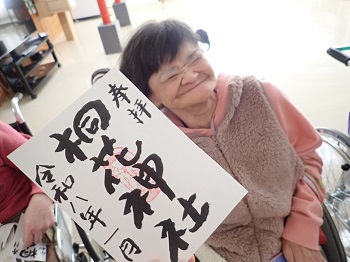 奉拝
桐花神社
令和八年一月